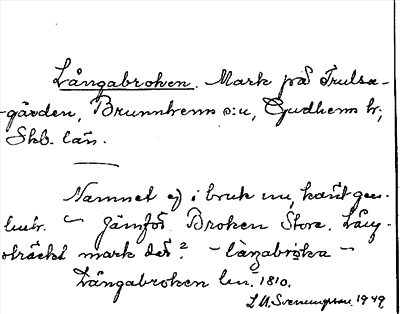 Långabroken. Mark på Trulsa-
gården, Brunnhems s:n, Gudhems hd,
Skb. län.
Namnet ej i bruk nu, känt gen.
lantm. — Jämför Broken Stora. Lång-
sträckt mark där? — långabroka —
Långabroken lm. 1810.
L.M. Svenungsson 1949